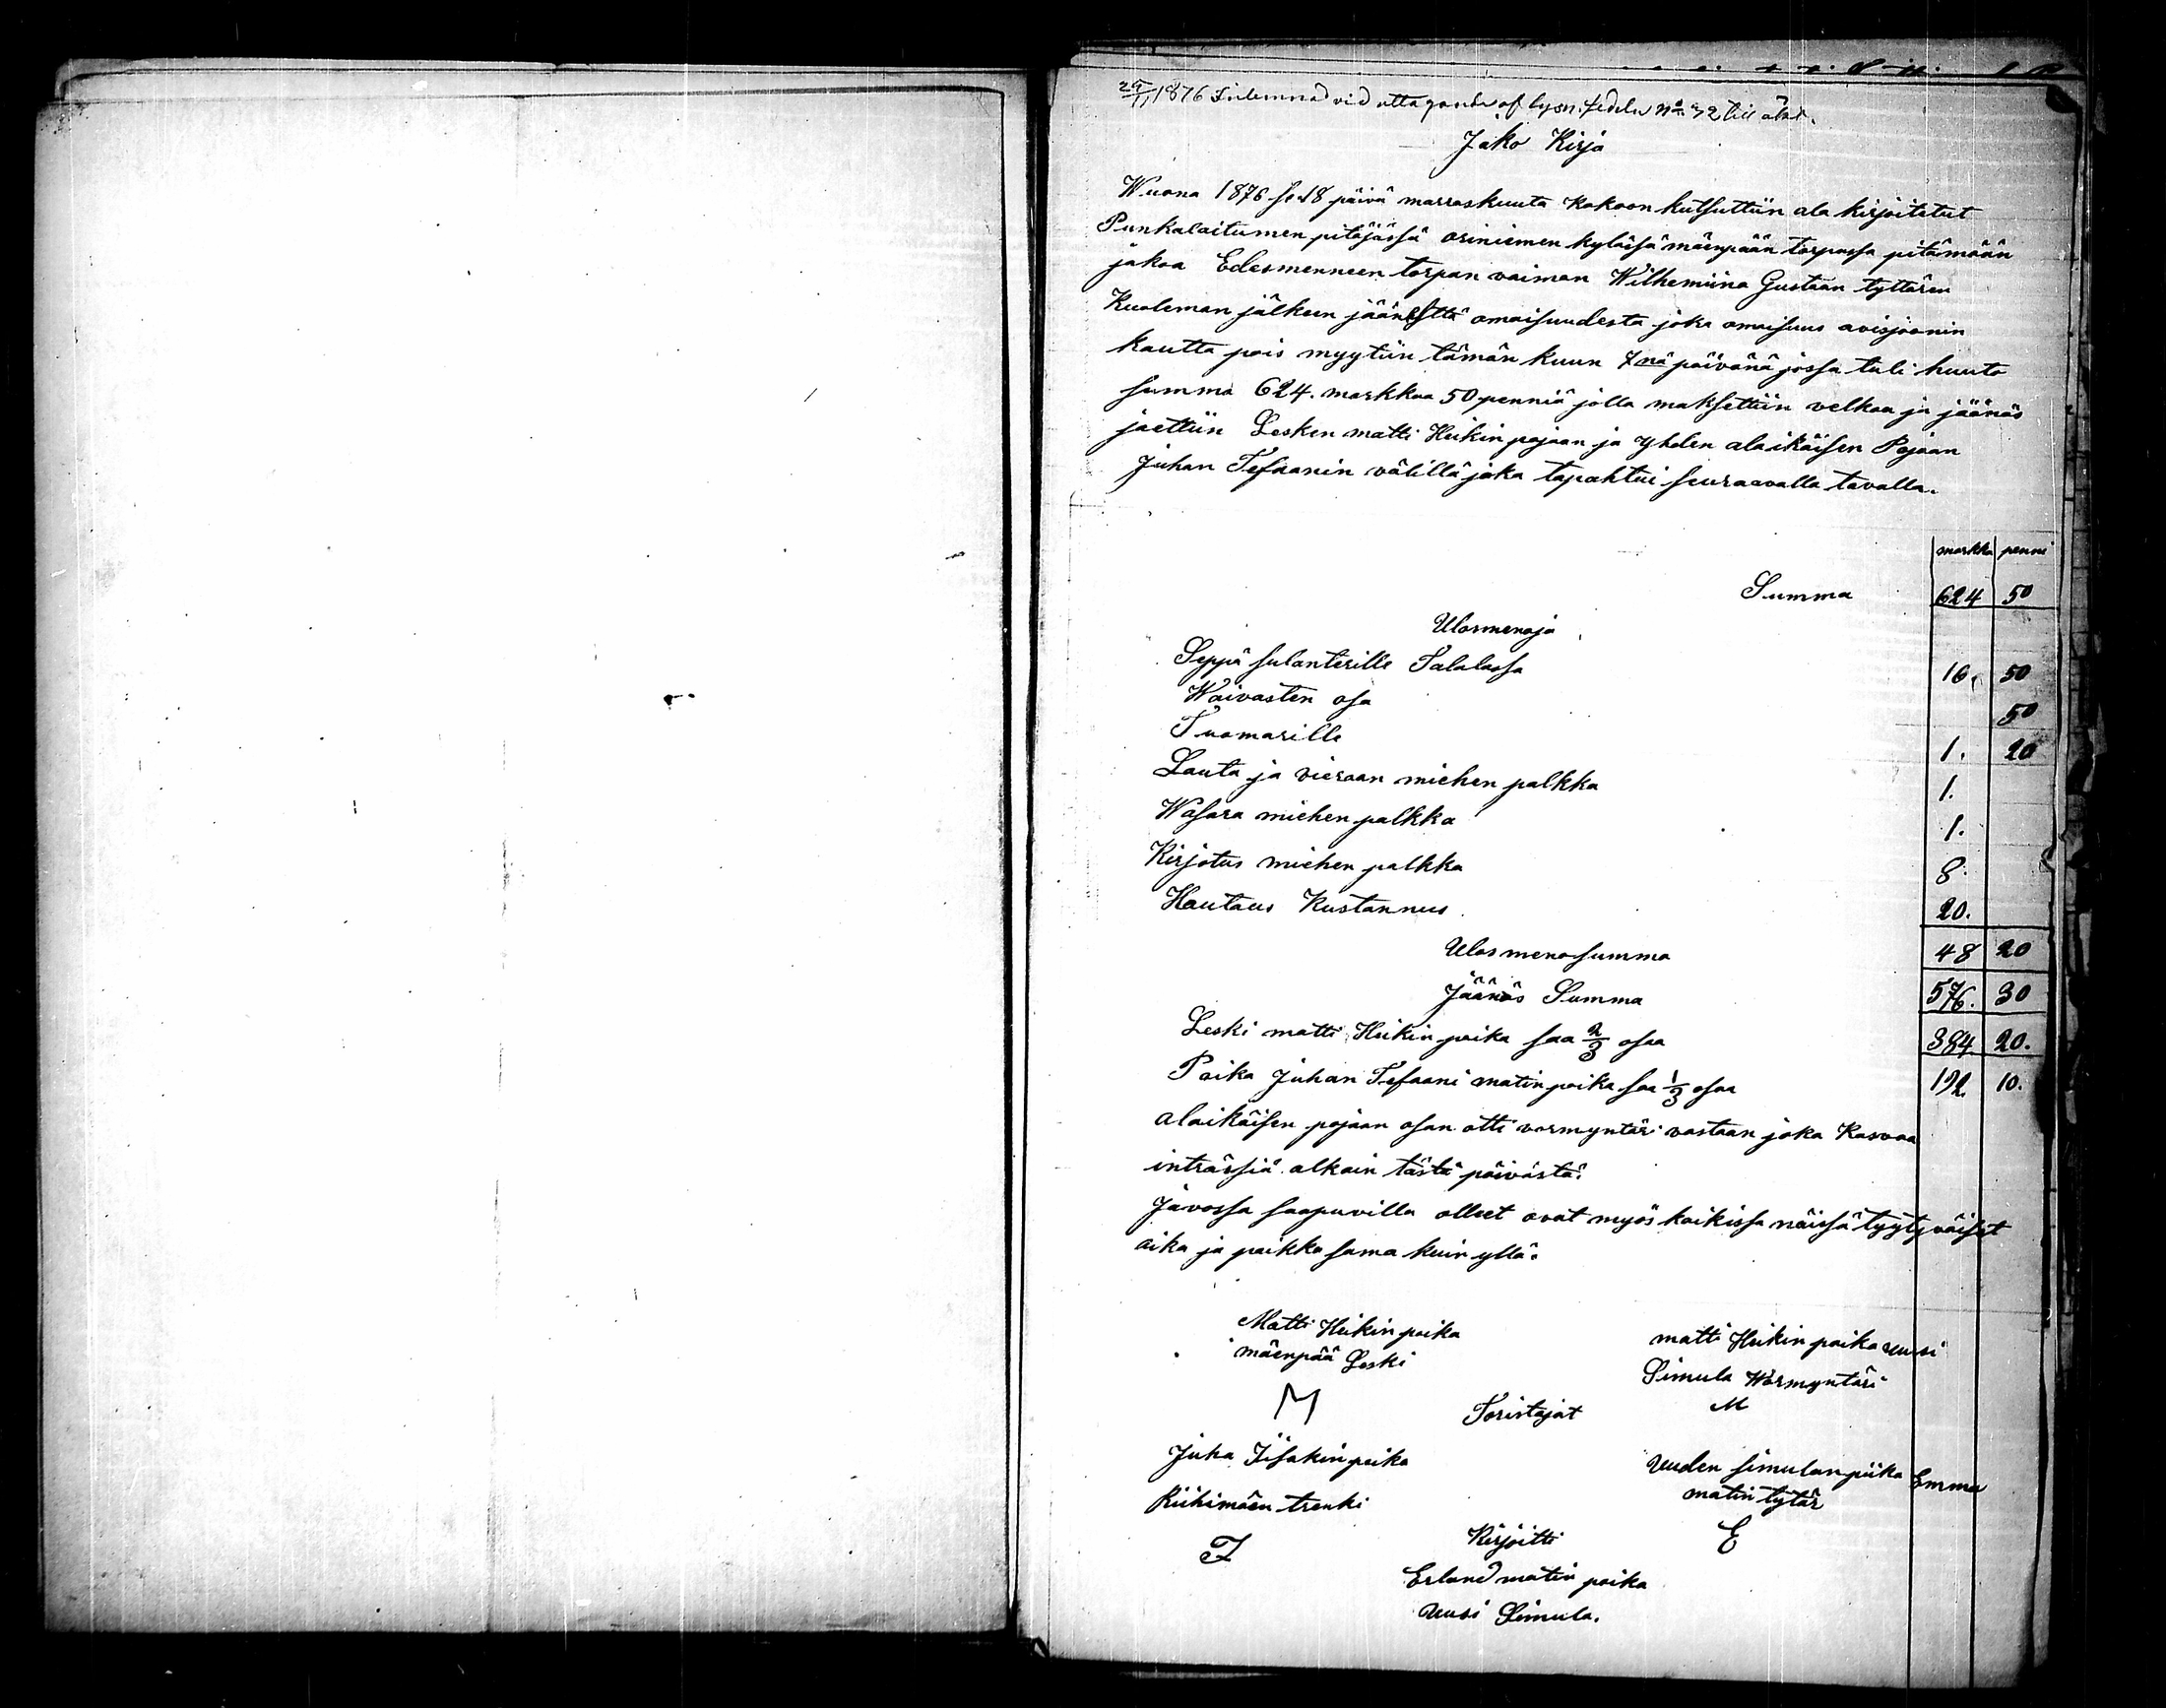 1876 Inlemnad vid uttagande af No 32 till
Jako Kirja
Wuona 1876 se 18 päivä marraskuuta kokoon kutsuttiin ala kirjoitetut
Punkalaitumen pitäjässä oriniemen kylässä mäenpään torpassa pitämään
jakoa Edesmenneen torpan vaiman Wilhemiina Gustaan tyttären
Kuoleman jälkeen jäänestta omaisuudesta joka omaisuus avisjoonin
kautta pois myytiin tämän kuun 7nä päivänä jossa tuli huuto
summa 624. markkaa 50 penniä jolla maksettiin velkaa ja jäänös
jaettiin Lesken matti Heikin pojaan ja yhden alaikäisen Pojaan
Juhan Tefaanin välillä joka tapahtui seuraavalla tavalla.
markka penni
Summa 624 50
Ulosmenoja
Seppä sulanterille Talalassa 16. 50
Waivasten osa 50
Tuomarille 1. 20
Lauta ja vieraan miehen palkka 1.
Wasara miehen palkka 1.
Kirjotus miehen palkka 8.
Hautaus Kustannus 20.
Ulosmenosumma 48 20
Jäänös Summa 576. 30
Leski matti Heikin poika saa 2/3 osaa 384 20.
Poika Juhan Tefaani matin poika saa 1/3 osaa 192 10.
alaikäisen pojaan osan otti vormyntäri vastaan joka Kasvaa
inträssiä alkain tästä päivästä:
Javossa saapuvilla olleet ovat myös kaikissa näissä tyytyväiset
aika ja paikka sama kuin yllä.
Matti Heikin poika matti Heikin poika uusi
mäenpää Leski Simula Wormyntäri
M Toristajat M
Juha Iisakin poika Uuden simulan piika Emma
Riihimäen trenki matin tytär
I Kirjoitti E
Erland matin poika
Uusi Simula.